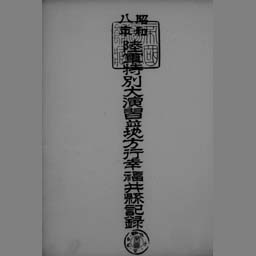 昭和八年
陸軍特別大演習並地方行幸福井縣記錄